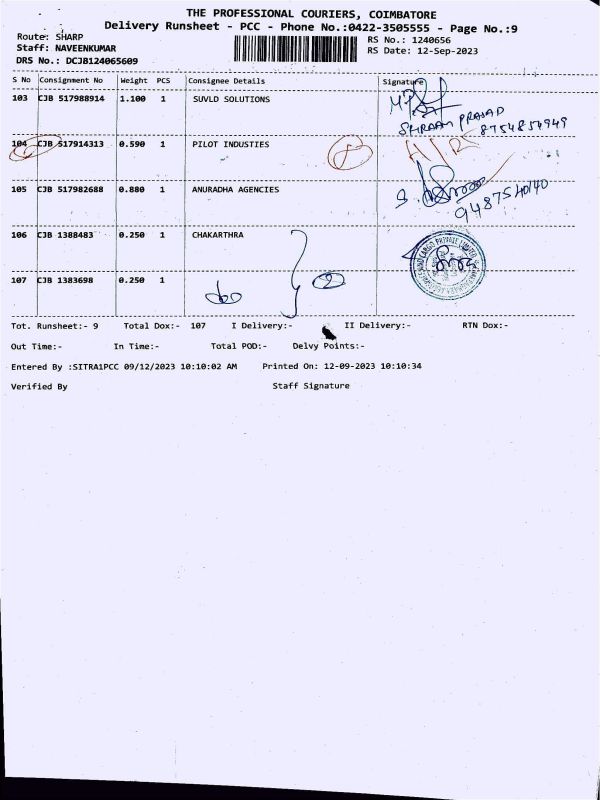 THE PROFESSIONAL COURIERS, COIMBATORE
Delivery Runsheet - PCC - Phone No.:0422-3505555 - Page No.:9
Route: SHARP
RS No.: 1240656
Staff: NAVEENKUMAR
RS Date: 12-Sep-2023
DRS No.: DCJB124065609
S No Consignment No Weight PCS Consignee Details Signature
103 CJB 517988914 1.100 1 SUVLD SOLUTIONS
SHRAAM PRASAD
8754854949
104 CJB 517914313 0.590 1 PILOT INDUSTIES
105 CJB 517982688 0.880 1 ANURADHA AGENCIES
9487540140
106 CJB 1388483 0.250 1 CHAKARTHRA
107 CJB 1383698 0.250 1
Tot. Runsheet:- 9 Total Dox:- 107 I Delivery:- II Delivery:- RTN Dox:-
Out Time:- In Time:- Total POD:- Delvy Points:-
Entered By :SITRA1PCC 09/12/2023 10:10:02 AM Printed On: 12-09-2023 10:10:34
Verified By Staff Signature